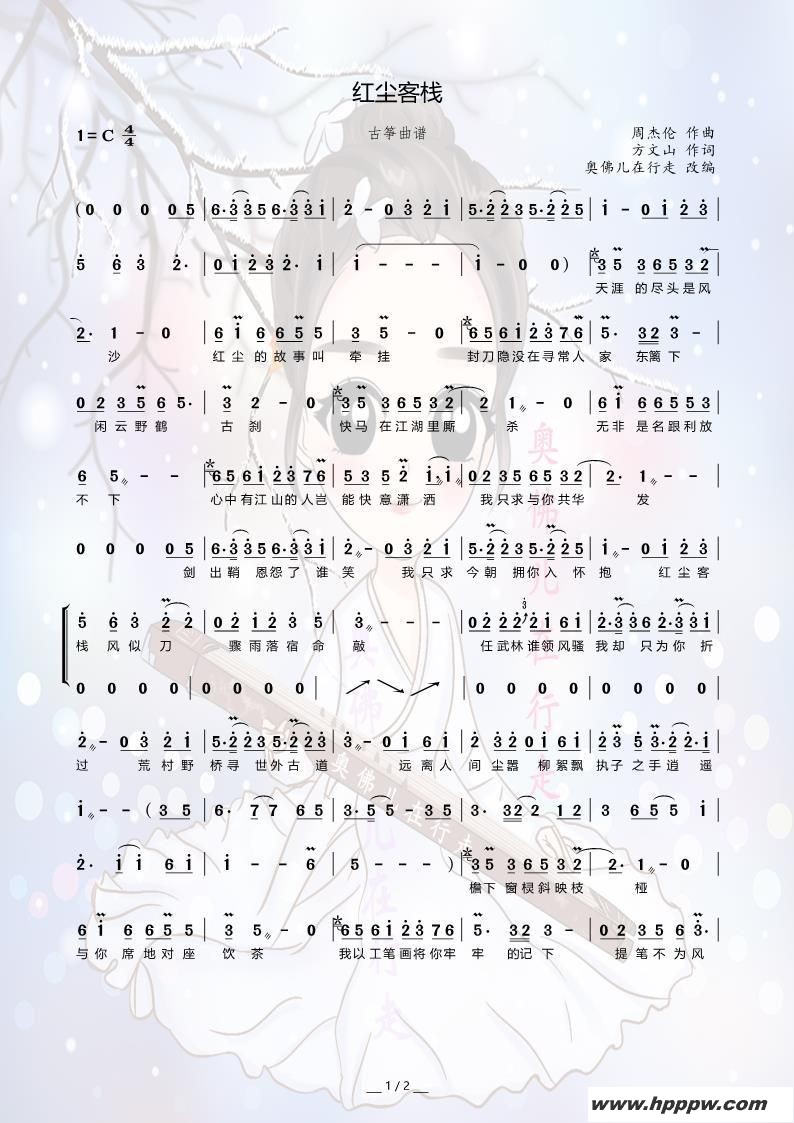 红尘客栈
1=C 4/4
古筝曲谱
周杰伦 作曲
方文山 作词
奥佛儿在行走 改编
(0 0 0 0 5 | 6·3 3 5 6·3 3 i | 2 - 0 3 2 i | 5·2 2 3 5·2 2 5 | i - 0 i 2 3 |
5 6 3 2· | 0 i 2 3 2· i | i - - - | i - 0 0) | 3 5 3 6 5 3 2 |
天涯 的尽头是风
2· 1 - 0 | 6 i 6 6 5 5 | 3 5 - 0 | 6 5 6 i 2 3 7 6 | 5· 3 2 3 - |
沙 红尘的故事叫 牵挂 封刀隐没在寻常人 家 东篱下
0 2 3 5 6 5· | 3 2 - 0 | 3 5 3 6 5 3 2 | 2 1 - 0 | 6 i 6 6 5 5 3 |
闲云野鹤 古刹 快马 在江湖里厮 杀 无非 是名跟利放
6 5 - - | 6 5 6 i 2 3 7 6 | 5 3 5 2 i i | 0 2 3 5 6 5 3 2 | 2· 1 - |
不下 心中有江山的人岂 能快意潇洒 我只求与你共华 发
0 0 0 0 5 | 6·3 3 5 6·3 3 i | 2 - 0 3 2 i | 5·2 2 3 5·2 2 5 | i - 0 i 2 3 |
剑 出鞘 恩怨了 谁 笑 我只求 今朝 拥你入 怀 抱 红尘客
5 6 3 2 2 | 0 2 i 2 3 | 3 - - - | 0 2 2 2 2 i 6 i | 2·3 3 6 2·3 3 5 |
栈 风似刀 骤雨落宿命 敲 任武林谁领风骚 我却 只为你 折
0 0 0 0 | 0 0 0 0 | | 0 0 0 0 | 0 0 0 0 |
2 - 0 3 2 i | 5·2 2 3 5·2 2 3 | 3 - 0 i 6 i | 2 3 2 0 i 6 i | 2 3 5 3·2 2 i |
过 荒村野 桥寻 世外古 道 远离人 间尘嚣 柳絮飘 执子 之手逍 遥
i - - (3 5 | 6· 7 7 6 5 | 3· 5 5 - 3 5 | 3· 3 2 2 1 2 | 3 6 5 5 i |
2· i i 6 i | i - - 6 | 5 - - -) | 3 5 3 6 5 3 2 | 2· 1 - 0 |
檐下 窗棂斜映枝 桠
6 i 6 6 5 5 | 3 5 - 0 | 6 5 6 i 2 3 7 6 | 5· 3 2 3 - | 0 2 3 5 6 5 3 |
与你 席地对座 饮茶 我以工笔画将你牢 牢 的记下 提笔不为风
奥佛儿在行走
奥佛儿在行走
奥佛儿在行走
1 / 2
www.hpppw.com